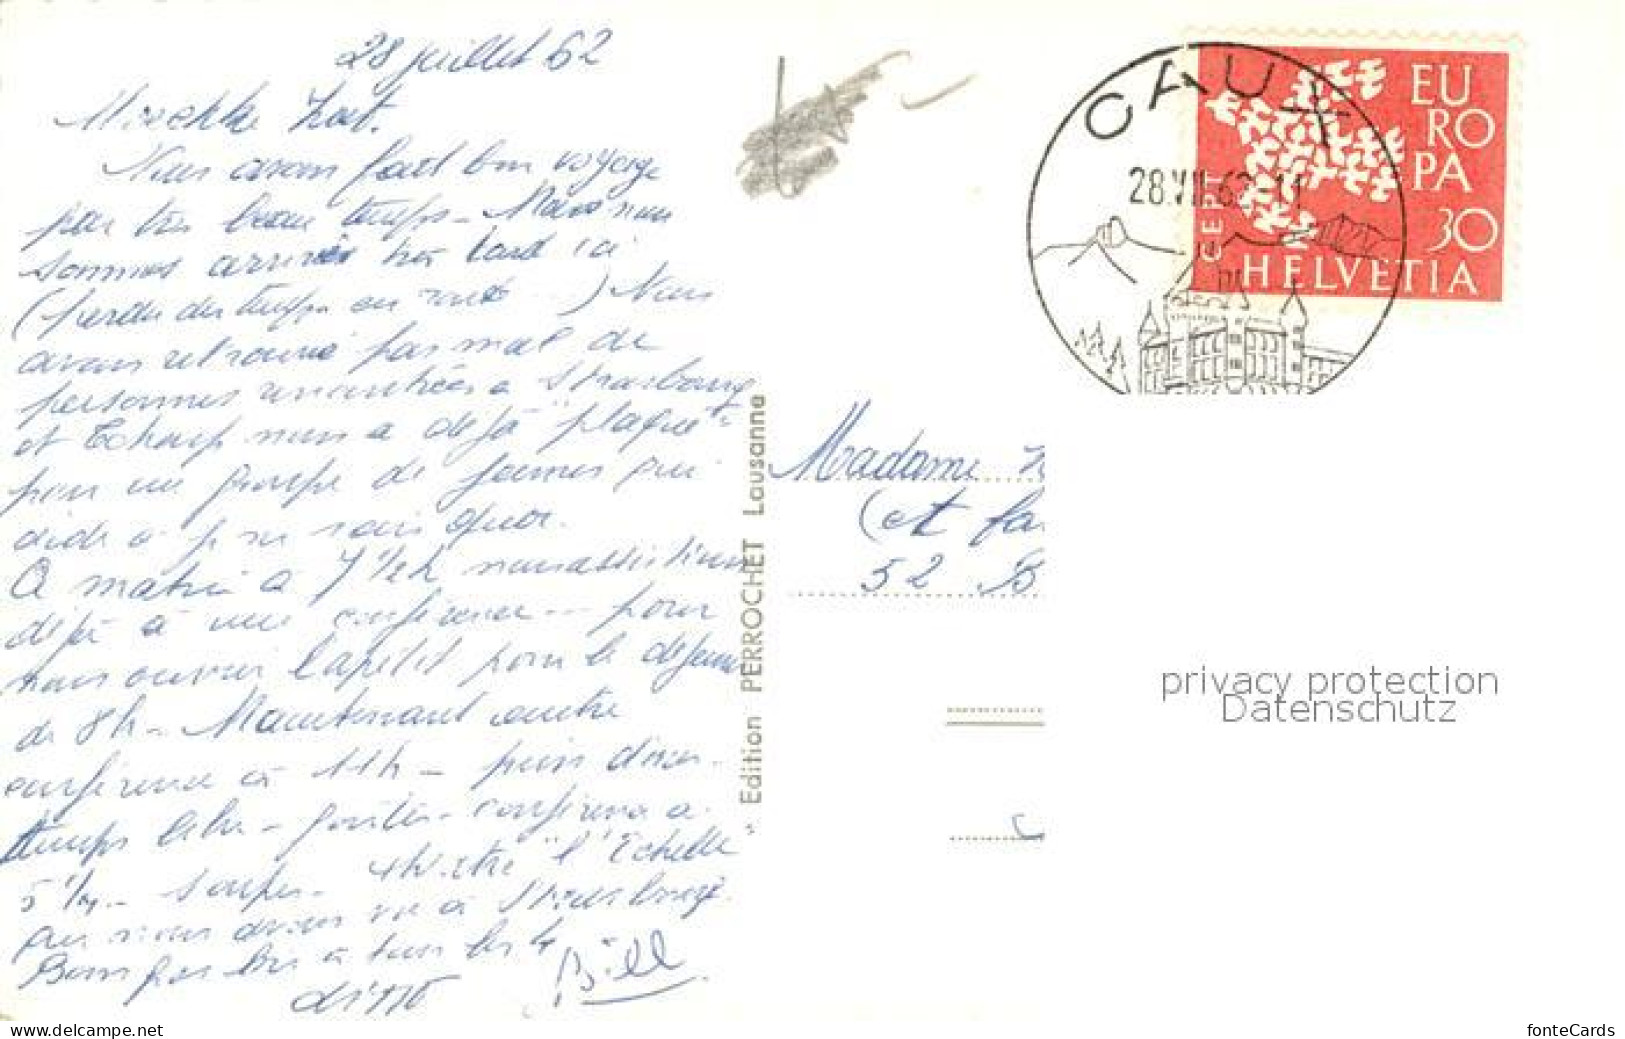 28 juillet 62
Nous avons fait bon voyage
par très beau temps - Mais nous
sommes arrivés très tard ici
(perdu du temps en route ...) Nous
avons retrouvé pas mal de
personnes rencontrées à Strasbourg
et nous a déjà "plaqué"
pour un groupe de jeunes qui
à je ne sais quoi.
matin à 7 1/2 h nous assistions
déjà à une conférence ... pour
nous ouvrir l'apétit pour le déjeuner
de 8h - Maintenant autre
conférence à 11h - puis diner -
temps libre - goûter - conférence à
5 1/2 - souper - "l'Echelle"
que nous avons vue à Strasbourg.
Bons à tous les 4
Bill
Edition PERROCHET Lausanne
CAUX
28.VII.62-11
EUROPA
CEPT
30
HELVETIA
Madame
(et fa
52 B
privacy protection
Datenschutz
www.delcampe.net
fonteCards